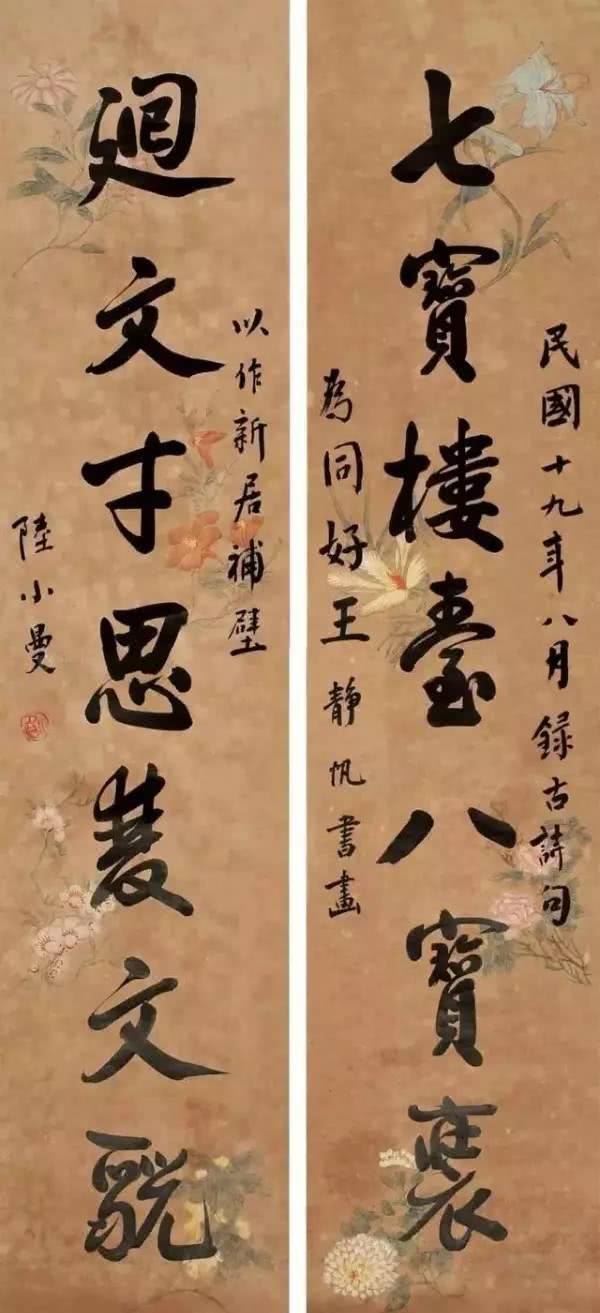 七寶樓臺八寶裝
民國十九年八月錄古詩句
為同好王靜帆書畫
廻文才思文
以作新居補壁
陸小曼